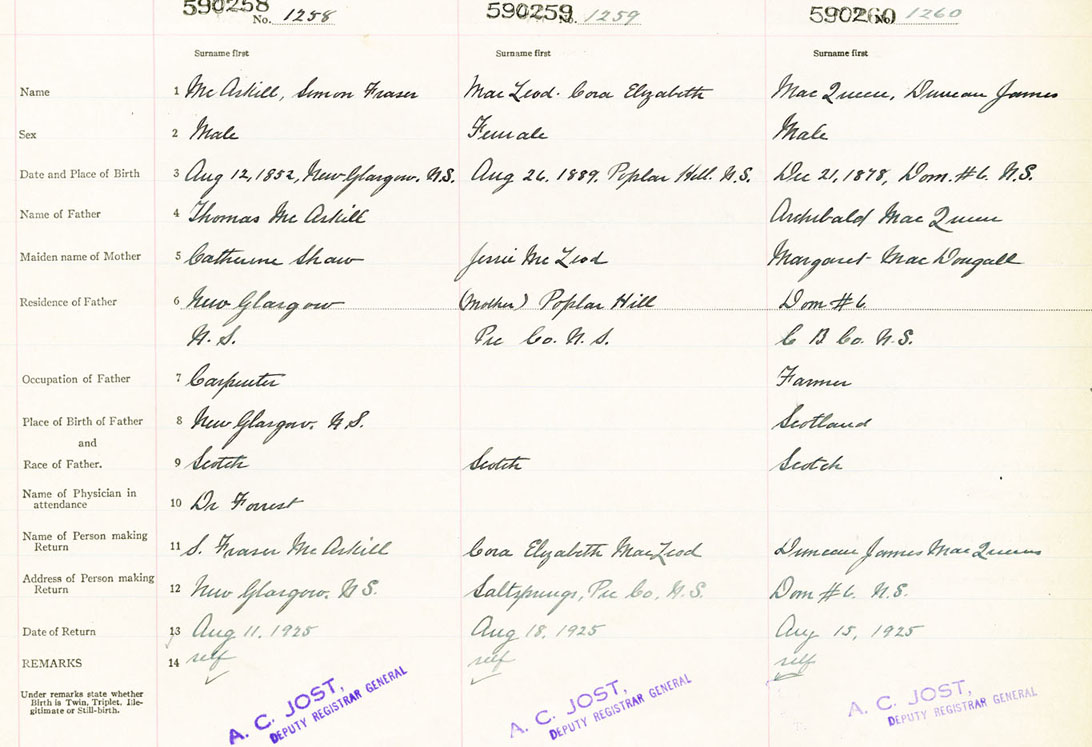 590258 No. 1258 590259 No. 1259 590260 No. 1260
Surname first Surname first Surname first
Name 1 McAskill, Simon Fraser MacLeod. Cora Elizabeth MacQueen, Duncan James
Sex 2 Male Female Male
Date and Place of Birth 3 Aug 12, 1852, New Glasgow. N.S. Aug 26. 1889. Poplar Hill. N.S. Dec 21, 1878, Dom. #6. N.S.
Name of Father 4 Thomas McAskill Archibald MacQueen
Maiden name of Mother 5 Catherine Shaw Jessie McLeod Margaret MacDougall
Residence of Father 6 New Glasgow (Mother) Poplar Hill Dom #6
N.S. Pic Co. N.S. C B Co. N.S.
Occupation of Father 7 Carpenter Farmer
Place of Birth of Father 8 New Glasgow. N.S. Scotland
and
Race of Father. 9 Scotch Scotch Scotch
Name of Physician in
attendance 10 Dr Forrest
Name of Person making
Return 11 S. Fraser McAskill Cora Elizabeth MacLeod Duncan James MacQueen
Address of Person making
Return 12 New Glasgow. N.S. Saltsprings, Pic Co, N.S. Dom #6. N.S.
Date of Return 13 Aug 11, 1925 Aug 18, 1925 Aug 15, 1925
REMARKS 14 self self self
Under remarks state whether
Birth is Twin, Triplet, Ille-
gitimate or Still-birth.
A. C. JOST, A. C. JOST, A. C. JOST,
DEPUTY REGISTRAR GENERAL DEPUTY REGISTRAR GENERAL DEPUTY REGISTRAR GENERAL